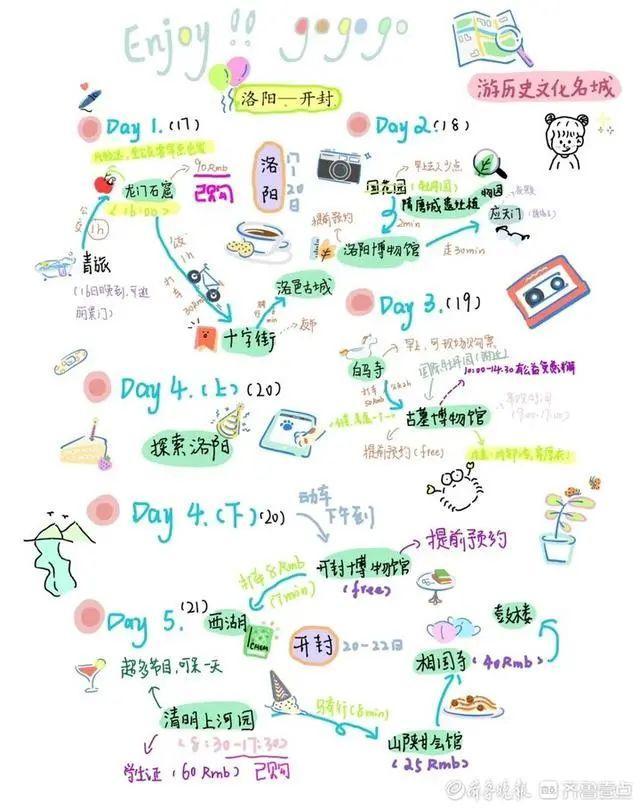 Enjoy !! gogogo
游历史文化名城
洛阳—开封
Day 1. (17)
90Rmb
龙门石窟
已购
(16:00)
公交
1h
青旅
(16日晚到,可逛
丽景门)
饭
1h
打车
30Rmb
骑行
min
洛邑古城
十字街
夜市
洛阳
17—20日
Day 2. (18)
国花园
早上去人少点
(牡丹园)
隋唐城遗址植物园
2min
提前预约
洛阳博物馆
走30min
应天门
Day 3. (19)
白马寺
早上,可现场购票
国际牡丹园(附近)
打车
50Rmb
10:00-14:30 有公益免费讲解
古墓博物馆
提前预约(free)
Day 4. (上) (20)
探索洛阳
Day 4. (下) (20)
动车
下午到
开封博物馆
(free)
提前预约
打车8Rmb
(7min)
西湖
Day 5. (21)
开封
20-22日
超多节目,可呆一天
清明上河园
(8:30-17:30)
学生证 (60Rmb) 已购
骑行(8min)
山陕甘会馆
(25Rmb)
相国寺
(40Rmb)
鼓楼
齐鲁晚报
齐鲁壹点